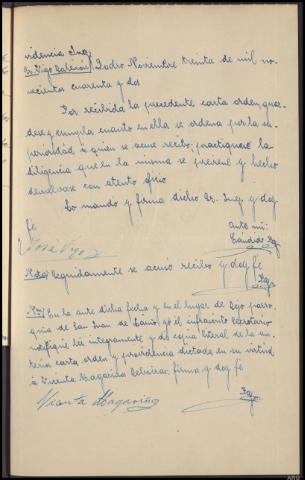 videncia Juez
Sr. Vigo Calvión Dodro Noviembre treinta de mil no-
vecientos cuarenta y dos
Por recibida la precedente carta orden guar-
dese y cumpla cuanto en ella se ordena por la su-
perioridad a quien se acuse recibo, practiquese la
diligencia que en la misma se previene y hecho
devuelvase con atento oficio
Lo mando y firma dicho Sr. Juez y doy
fe
Ante mi:
José Vigo
Cándido
Nota) Seguidamente se acusó recibo y doy fe
En la ante dicha fecha y en el lugar de parro-
quia de San Juan de yo el infrascrito Secretario
notifiqué leí integramente y dí copia literal de la an-
terior carta orden y providencia dictada en su virtud
á Vicenta Magariños firma y doy fé
Vicenta Magariños